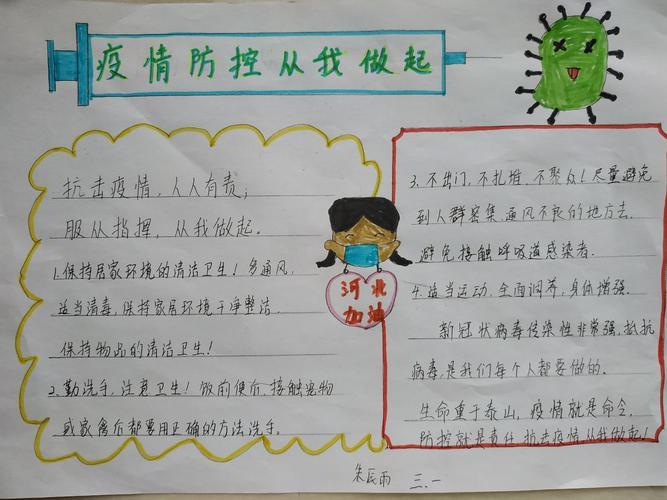 疫情防控从我做起
抗击疫情，人人有责；
服从指挥，从我做起.
1.保持居家环境的清洁卫生！多通风，
适当消毒，保持家居环境干净整洁.
保持物品的清洁卫生！
2.勤洗手，注意卫生！饭前便后，接触宠物
或家禽后都要用正确的方法洗手.
河北
加油
3.不出门，不扎堆，不聚众！尽量避免
到人群密集通风不良的地方去.
避免接触呼吸道感染者.
4.适当运动，全面调养，身体增强.
新冠状病毒传染性非常强，抵抗
病毒，是我们每个人都要做的.
生命重于泰山，疫情就是命令，
防控就是责任，抗击疫情，从我做起！
朱辰雨 三.一